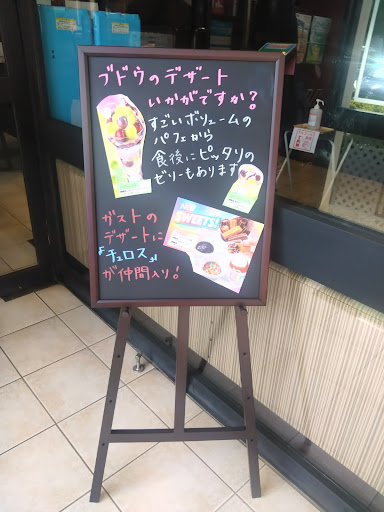 ブドウのデザート
いかがですか？
すごいボリュームの
パフェから
食後にピッタリの
ゼリーもあります
ガストの
デザートに
"チュロス"
が仲間入り！
SWEETS!